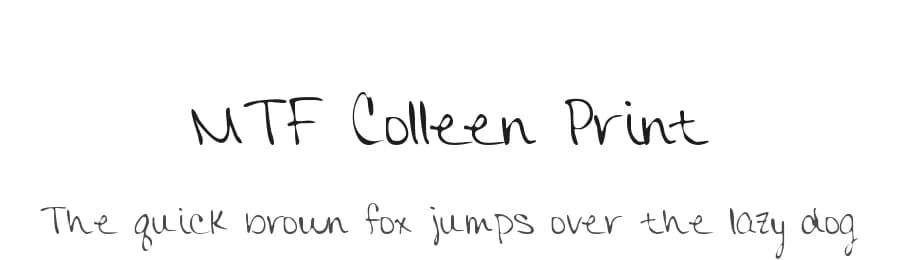 MTF Colleen Print
The quick brown fox jumps over the lazy dog